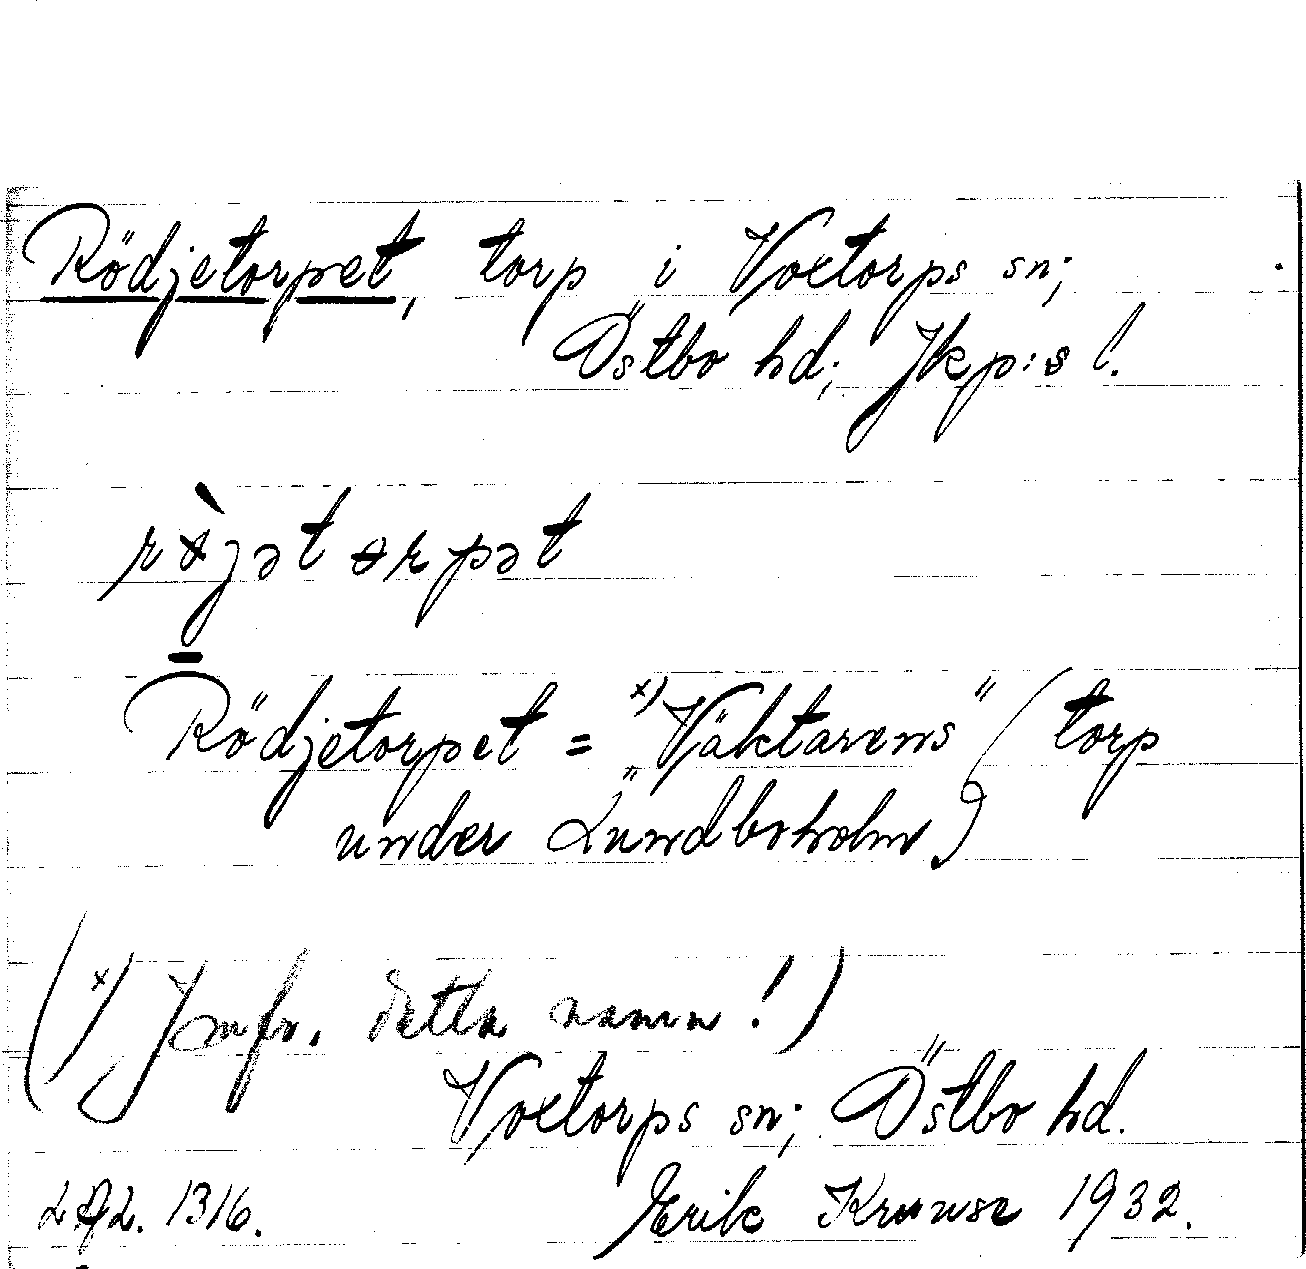 Rödjetorpet, torp i Voxtorps sn;
Östbo hd; Jkp:s l.
Rödjetorpet = x) "Väktarens" (torp
under Lundboholm)
(x) Jmfr. detta namn!)
Voxtorps sn; Östbo hd.
1316. Erik Kruuse 1932.